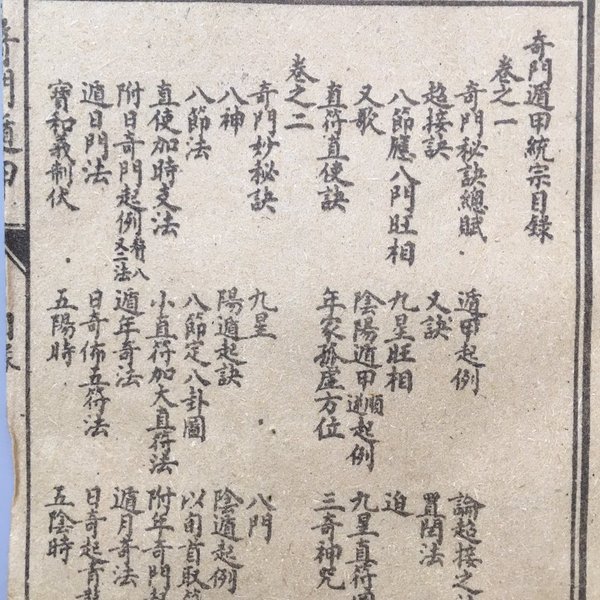 奇門遁甲統宗目錄
卷之一
奇門秘訣總賦 遁甲起例 論超接之
超接訣 又訣 置閏法
八節應八門旺相 九星旺相 迫
又歌 陰陽遁甲順逆起例 九星直符圖
直符直使訣 年家孤虛方位 三奇神咒
卷之二
奇門妙秘訣 九星 八門
八神 陽遁起訣 陰遁起例
八節法 八節定八卦圖 以旬首取符
直使加時支法 小直符加大直符法 附年奇門起
附日奇門起例又二法 遁年奇法 遁月奇法
遁日門法 日奇佈五符法 日奇起青
寶和義制伏 五陽時 五陰時
奇門遁甲